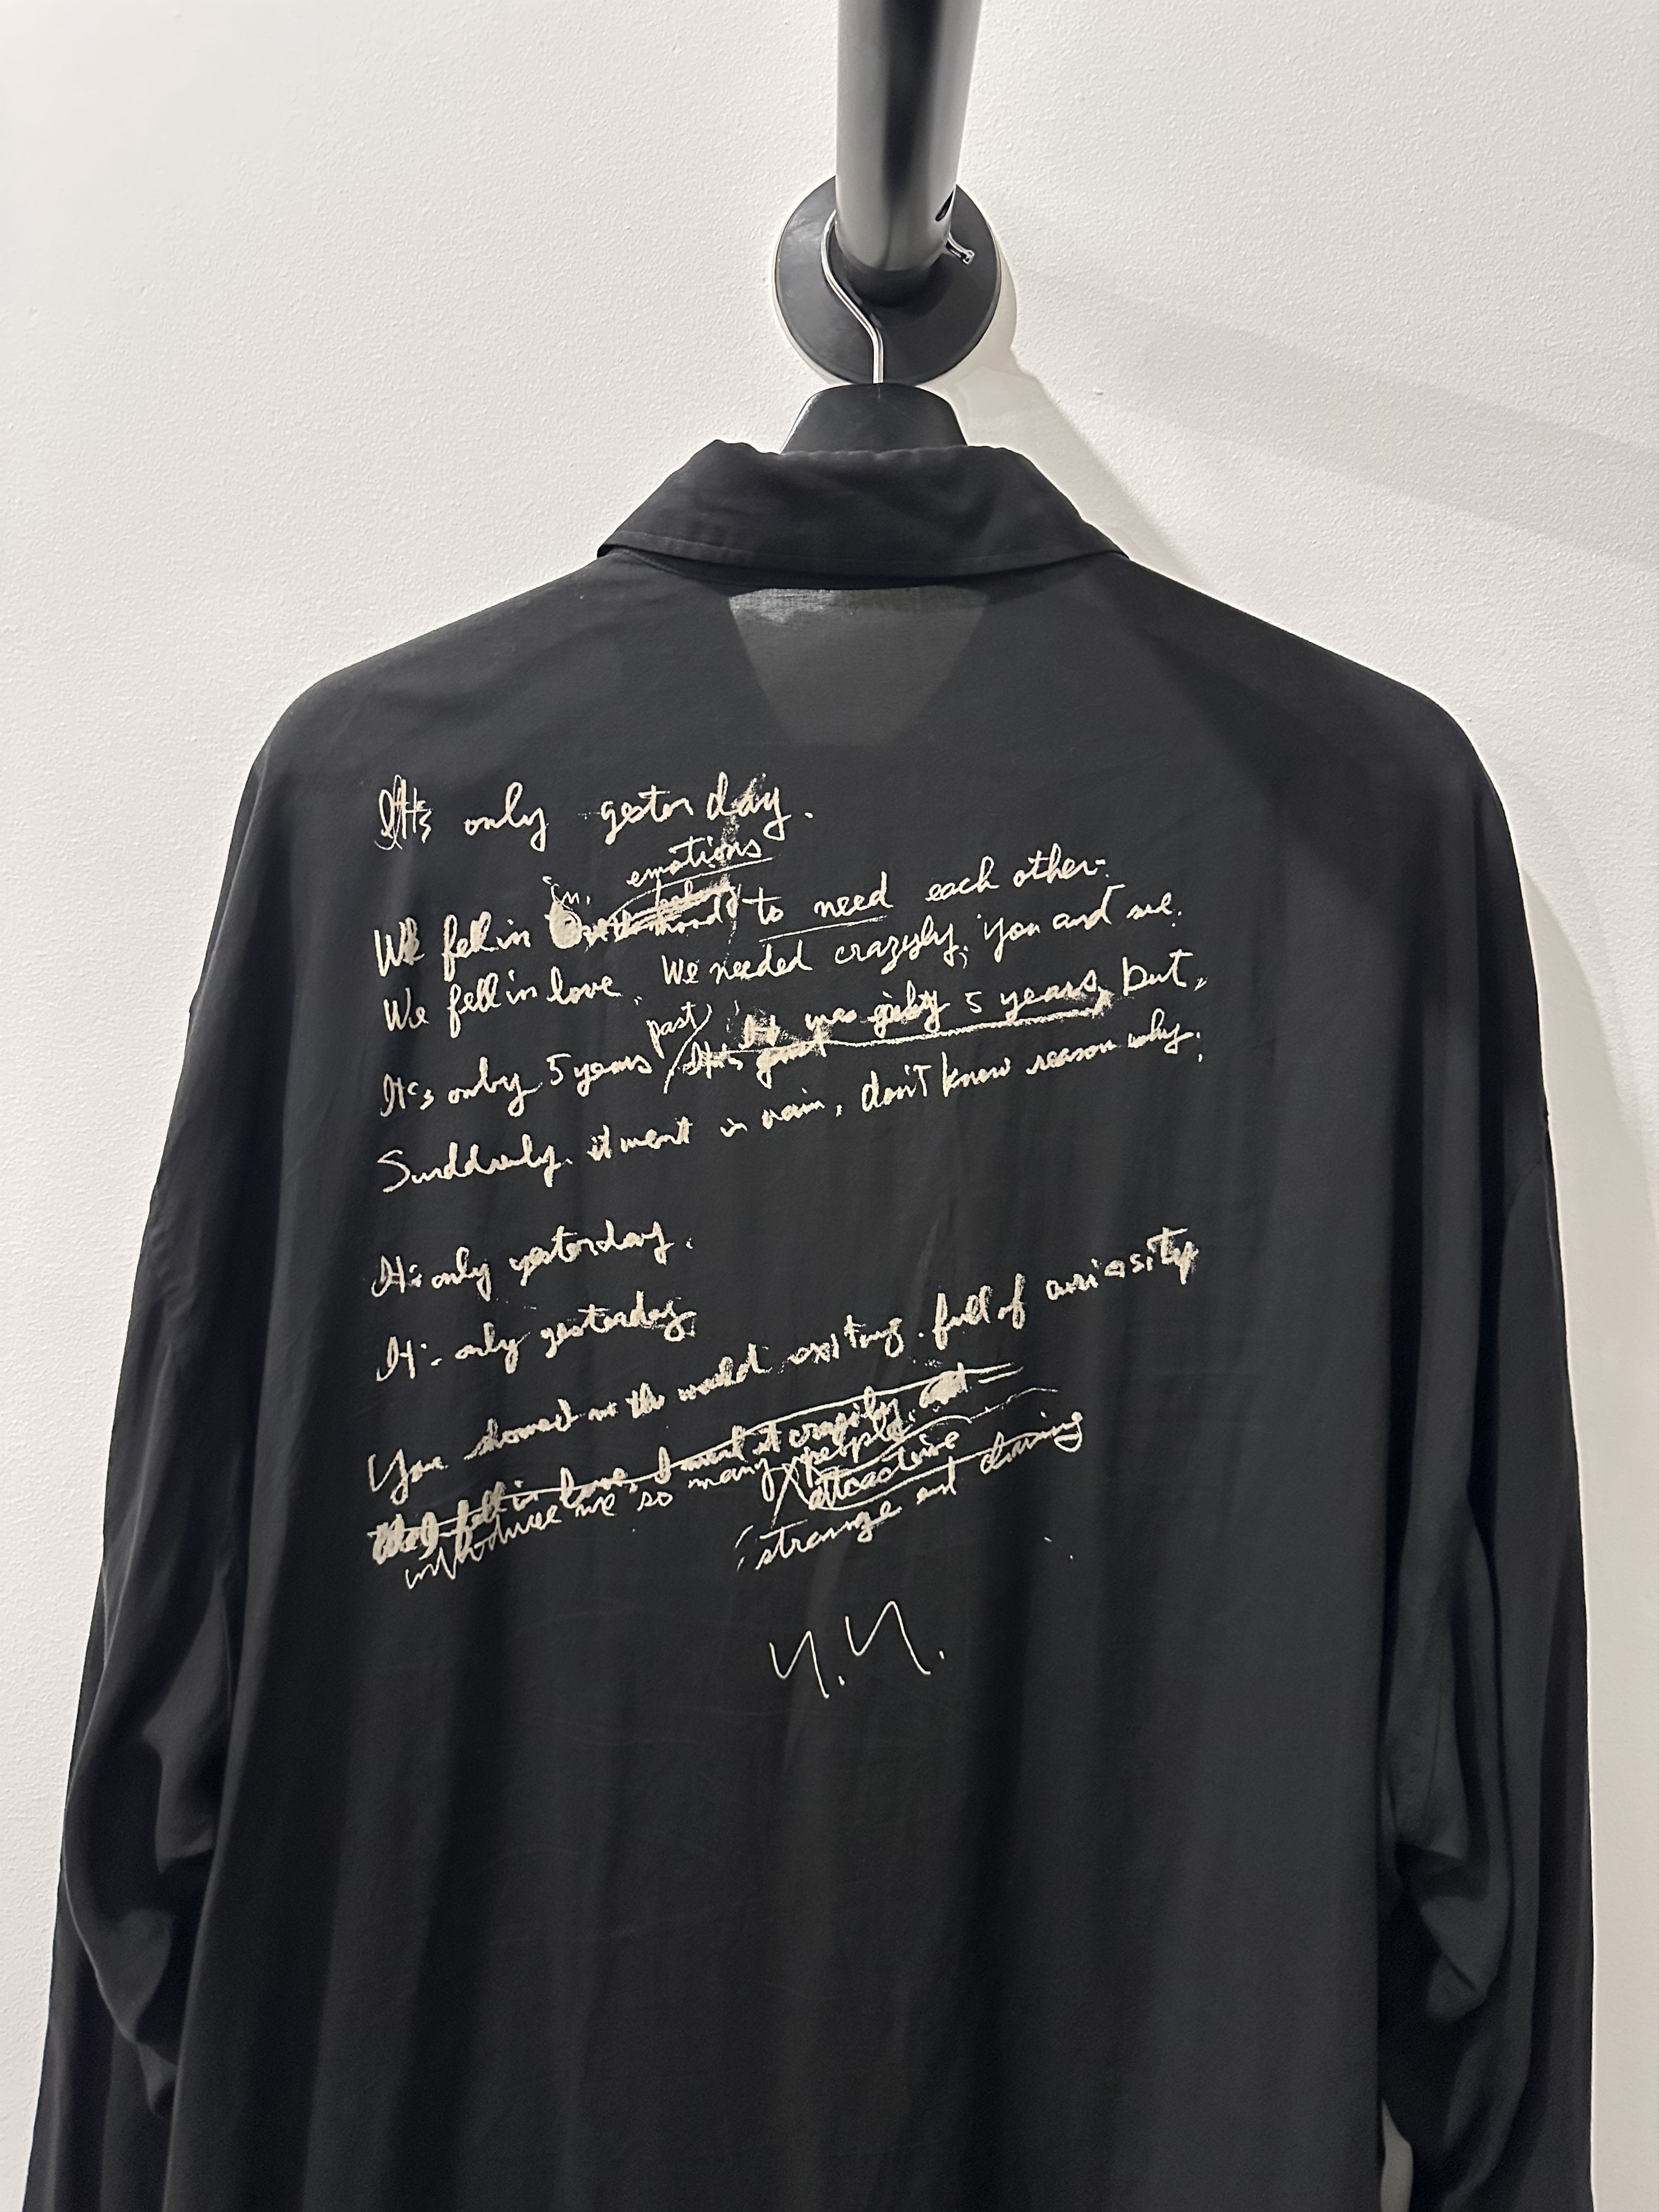 It's only yesterday.
emotions
We fell in in. to need each other.
We fell in love. We needed crazyly, you and me.
It's only 5 years past It was only 5 years, but,
Surddenly, it went in vain, don't know reason why.
It's only yesterday.
It's only yesterday,
You showed me the world exiting. full of curiosity
fell in love, I want it crazily.
introduce me so many people
attractive
strange and daring
Y.Y.